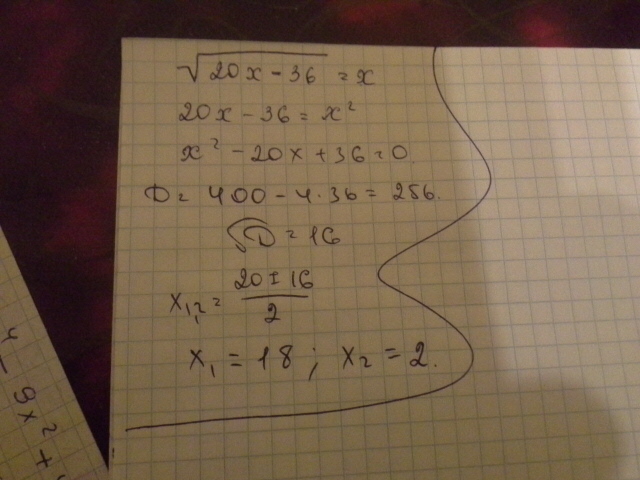 √20x - 36 = x
20x - 36 = x²
x² - 20x + 36 = 0.
D = 400 - 4·36 = 256.
√D = 16
x₁,₂ = (20 ± 16)/2
x₁ = 18 ; x₂ = 2.
- 9x² +